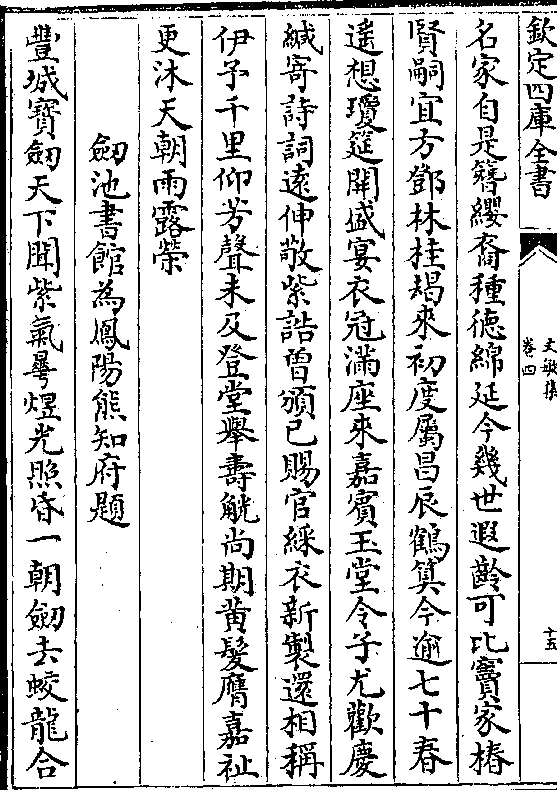 欽定四庫全書
文敏集
卷四
十五
名家自是簪纓裔種德綿延今幾世遐齡可比竇家椿
賢嗣宜方鄧林桂朅來初度屬昌辰鶴算今逾七十春
遙想瓊筵開盛宴衣冠滿座來嘉賓玉堂令子尤歡慶
緘寄詩詞遠伸敬紫誥曽頒已賜官綵衣新製還相稱
伊予千里仰芳聲未及登堂舉壽觥尚期黄髮膺嘉祉
更沐天朝雨露榮
劒池書館為鳳陽熊知府題
豐城寳劒天下聞紫氣㷸煜光照昏一朝劒去蛟龍合